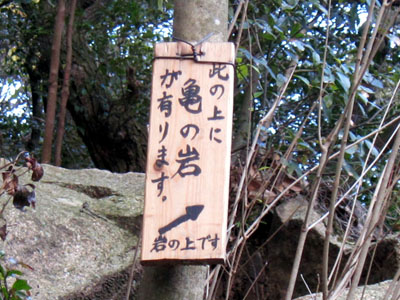 此の上に
亀の岩
が有ります。
岩の上です